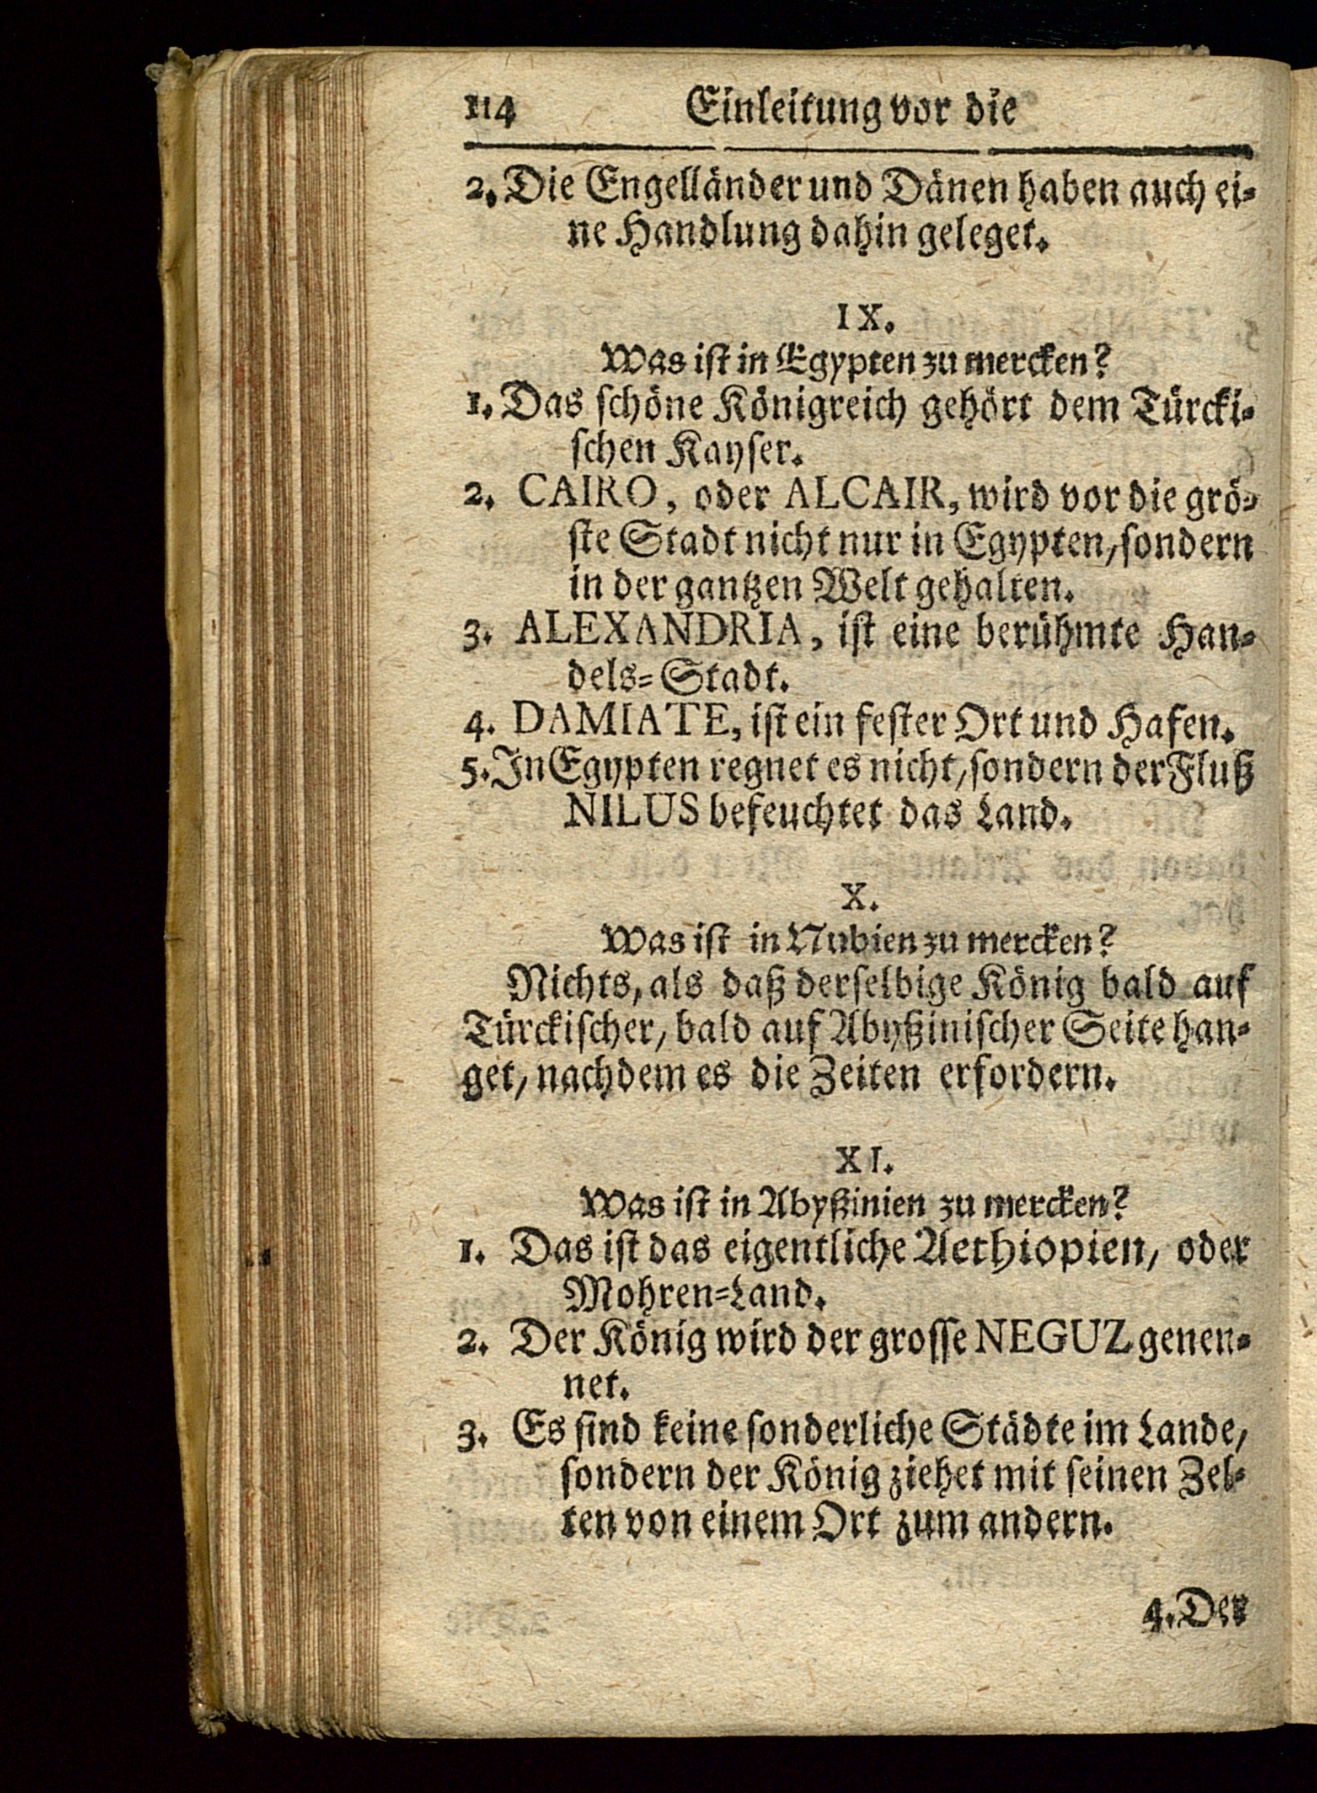 114 Einleitung vor die
2. Die Engelländer und Dänen haben auch ei-
ne Handlung dahin geleget.
IX.
Was ist in Egypten zu mercken?
1. Das schöne Königreich gehört dem Türcki-
schen Kayser.
2. CAIRO, oder ALCAIR, wird vor die grö-
ste Stadt nicht nur in Egypten, sondern
in der gantzen Welt gehalten.
3. ALEXANDRIA, ist eine berühmte Han-
dels-Stadt.
4. DAMIATE, ist ein fester Ort und Hafen.
5. In Egypten regnet es nicht, sondern der Fluß
NILUS befeuchtet das Land.
X.
Was ist in Nubien zu mercken?
Nichts, als daß derselbige König bald auf
Türckischer, bald auf Abyßinischer Seite han-
get, nachdem es die Zeiten erfordern.
XI.
Was ist in Abyßinien zu mercken?
1. Das ist das eigentliche Aethiopien, oder
Mohren-Land.
2. Der König wird der grosse NEGUZ genen-
net.
3. Es sind keine sonderliche Städte im Lande,
sondern der König ziehet mit seinen Zel-
ten von einem Ort zum andern.
4. Der